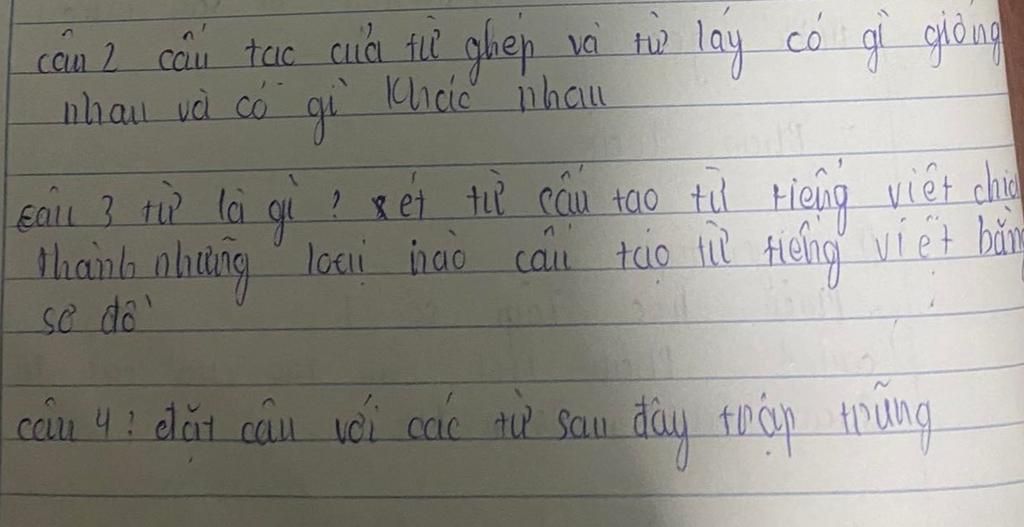 câu 2 cấu tạc của từ ghép và từ láy có gì giống
nhau và có gì khác nhau
câu 3 từ là gì ? xét từ cấu tạo từ tiếng việt chia
thành những loại nào cấu tạo từ tiếng việt bằng
sơ đồ
câu 4 : đặt câu với các từ sau đây trập trũng